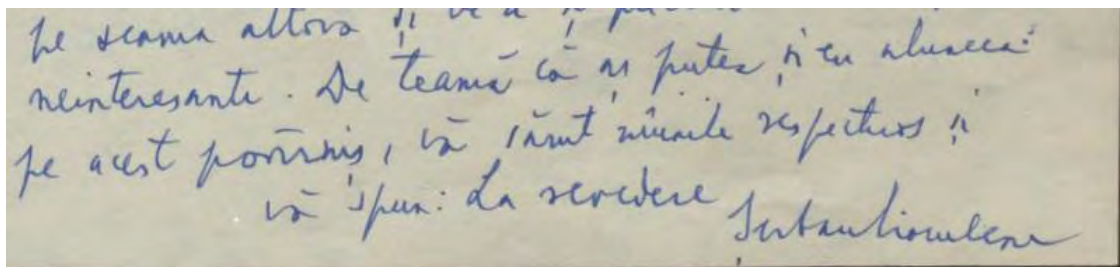 pe seama altora și
neinteresante. De teamă că aș putea și eu aluneca
pe acest povîrniș, vă sărut mîinile respectuos și
vă spun: La revedere
Șerban Cioculescu